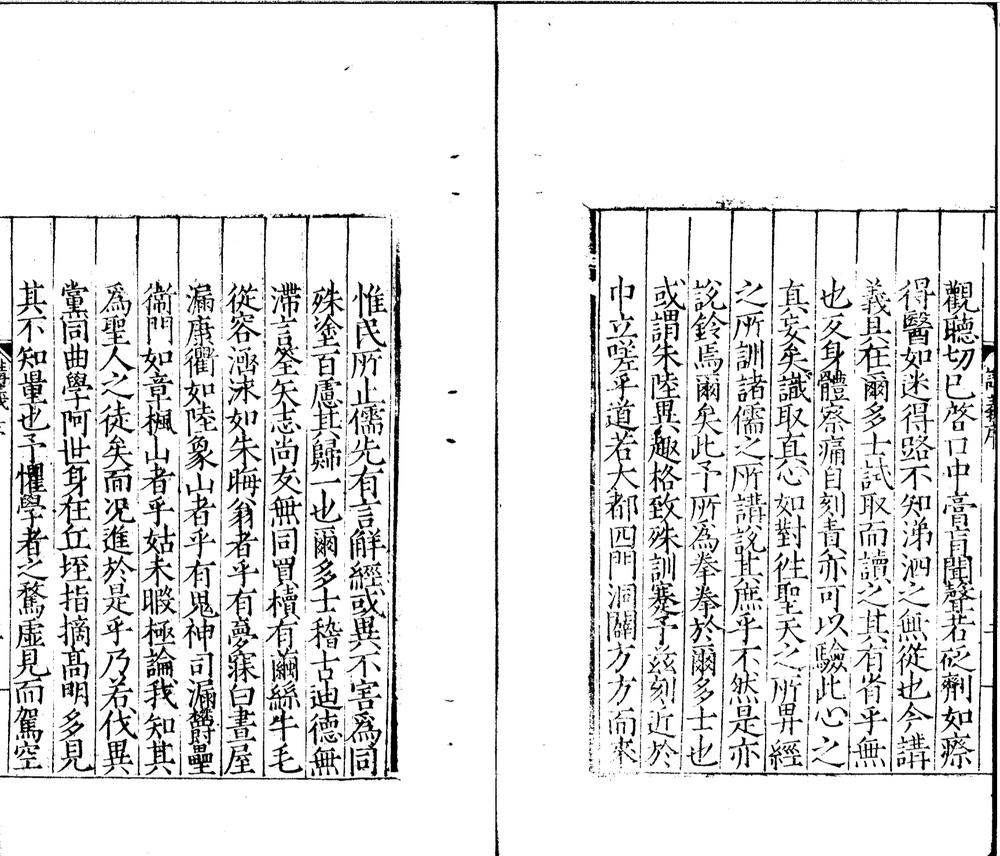 觀聽切己啓口中膏肓聞聲若砭劑如瘵
得醫如迷得路不知涕泗之無從也今講
義具在爾多士試取而讀之其有省乎無
也反身體察痛自刻責亦可以驗此心之
真妄矣識取真心如對徃聖天之所畀經
之所訓諸儒之所講說其庶乎不然是亦
說鈴焉爾矣此予所爲拳拳於爾多士也
或謂朱陸異趣格致殊訓蹇予兹刻近於
巾立嗟乎道若大都四門洞闢方方而來
惟民所止儒先有言解經或異不害爲同
殊塗百慮其歸一也爾多士稽古迪德無
滯言筌矢志尚友無同買櫝有繭絲牛毛
從容濟洣如朱晦翁者乎有夢寐白晝屋
漏康衢如陸象山者乎有鬼神司漏欝壘
衞門如章楓山者乎姑未暇極論我知其
爲聖人之徒矣而况進於是乎乃若伐異
黨同曲學阿世身在丘垤指摘高明多見
其不知量也予懼學者之騖虛見而駕空